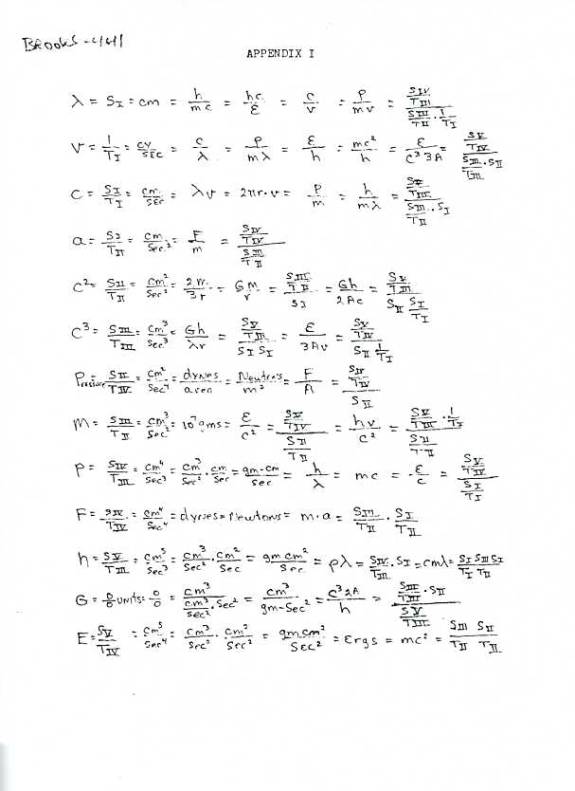 BROOKS-4641
APPENDIX I
λ = S_I = cm = h/mc = hc/ε = c/v = P/mv = (S_IV/T_III)/(S_III/T_II · 1/T_I)
V = 1/T_I = cy/sec = c/λ = P/mλ = ε/h = mc²/h = ε/(c³ 3A) = (S_V/T_IV)/(S_III/T_III · S_II)
C = S_I/T_I = cm/sec = λν = 2πr·v = P/m = h/mλ = (S_V/T_III)/(S_III/T_II · S_I)
a = S_I/T_II = cm/sec² = F/m = (S_IV/T_IV)/(S_III/T_II)
C² = S_II/T_II = cm²/sec² = = G m/r = (S_III/T_II)/ = Gh/2Ac = (S_V/T_III)/(S_II S_I/T_I)
C³ = S_III/T_III = cm³/sec³ = Gh/λr = (S_V/T_III)/(S_I S_I) = ε/3Av = (S_V/T_IV)/(S_II 1/T_I)
Pressure = S_II/T_IV = cm²/sec⁴ = dynes/area = Newtons/m² = F/A = (S_IV/T_IV)/S_II
M = S_III/T_II = cm³/sec² = 10⁷gms = ε/c² = (S_V/T_IV)/(S_II/T_II) = hv/c² = (S_V/T_III · 1/T_I)/(S_II/T_II)
P = S_IV/T_III = cm⁴/sec³ = cm³/sec² · cm/sec = gm·cm/sec = h/λ = mc = ε/c = (S_V/T_IV)/(S_I/T_I)
F = S_IV/T_IV = cm⁴/sec⁴ = dynes = Newtons = m·a = S_III/T_II · S_I/T_II
h = S_V/T_III = cm⁵/sec³ = cm³/sec² · cm²/sec = gm cm²/sec = pλ = S_IV/T_III · S_I = cmλ = S_I S_III S_I/T_I T_II
G = 0/0 units = 0/0 = cm³/(cm³/sec² · sec²) = cm³/gm-sec² = c³ 2A/h = (S_III/T_III · S_II)/(S_V/T_III)
E = S_V/T_IV = cm⁵/sec⁴ = cm³/sec² · cm²/sec² = gm cm²/sec² = Ergs = mc² = S_III S_II/T_II T_II